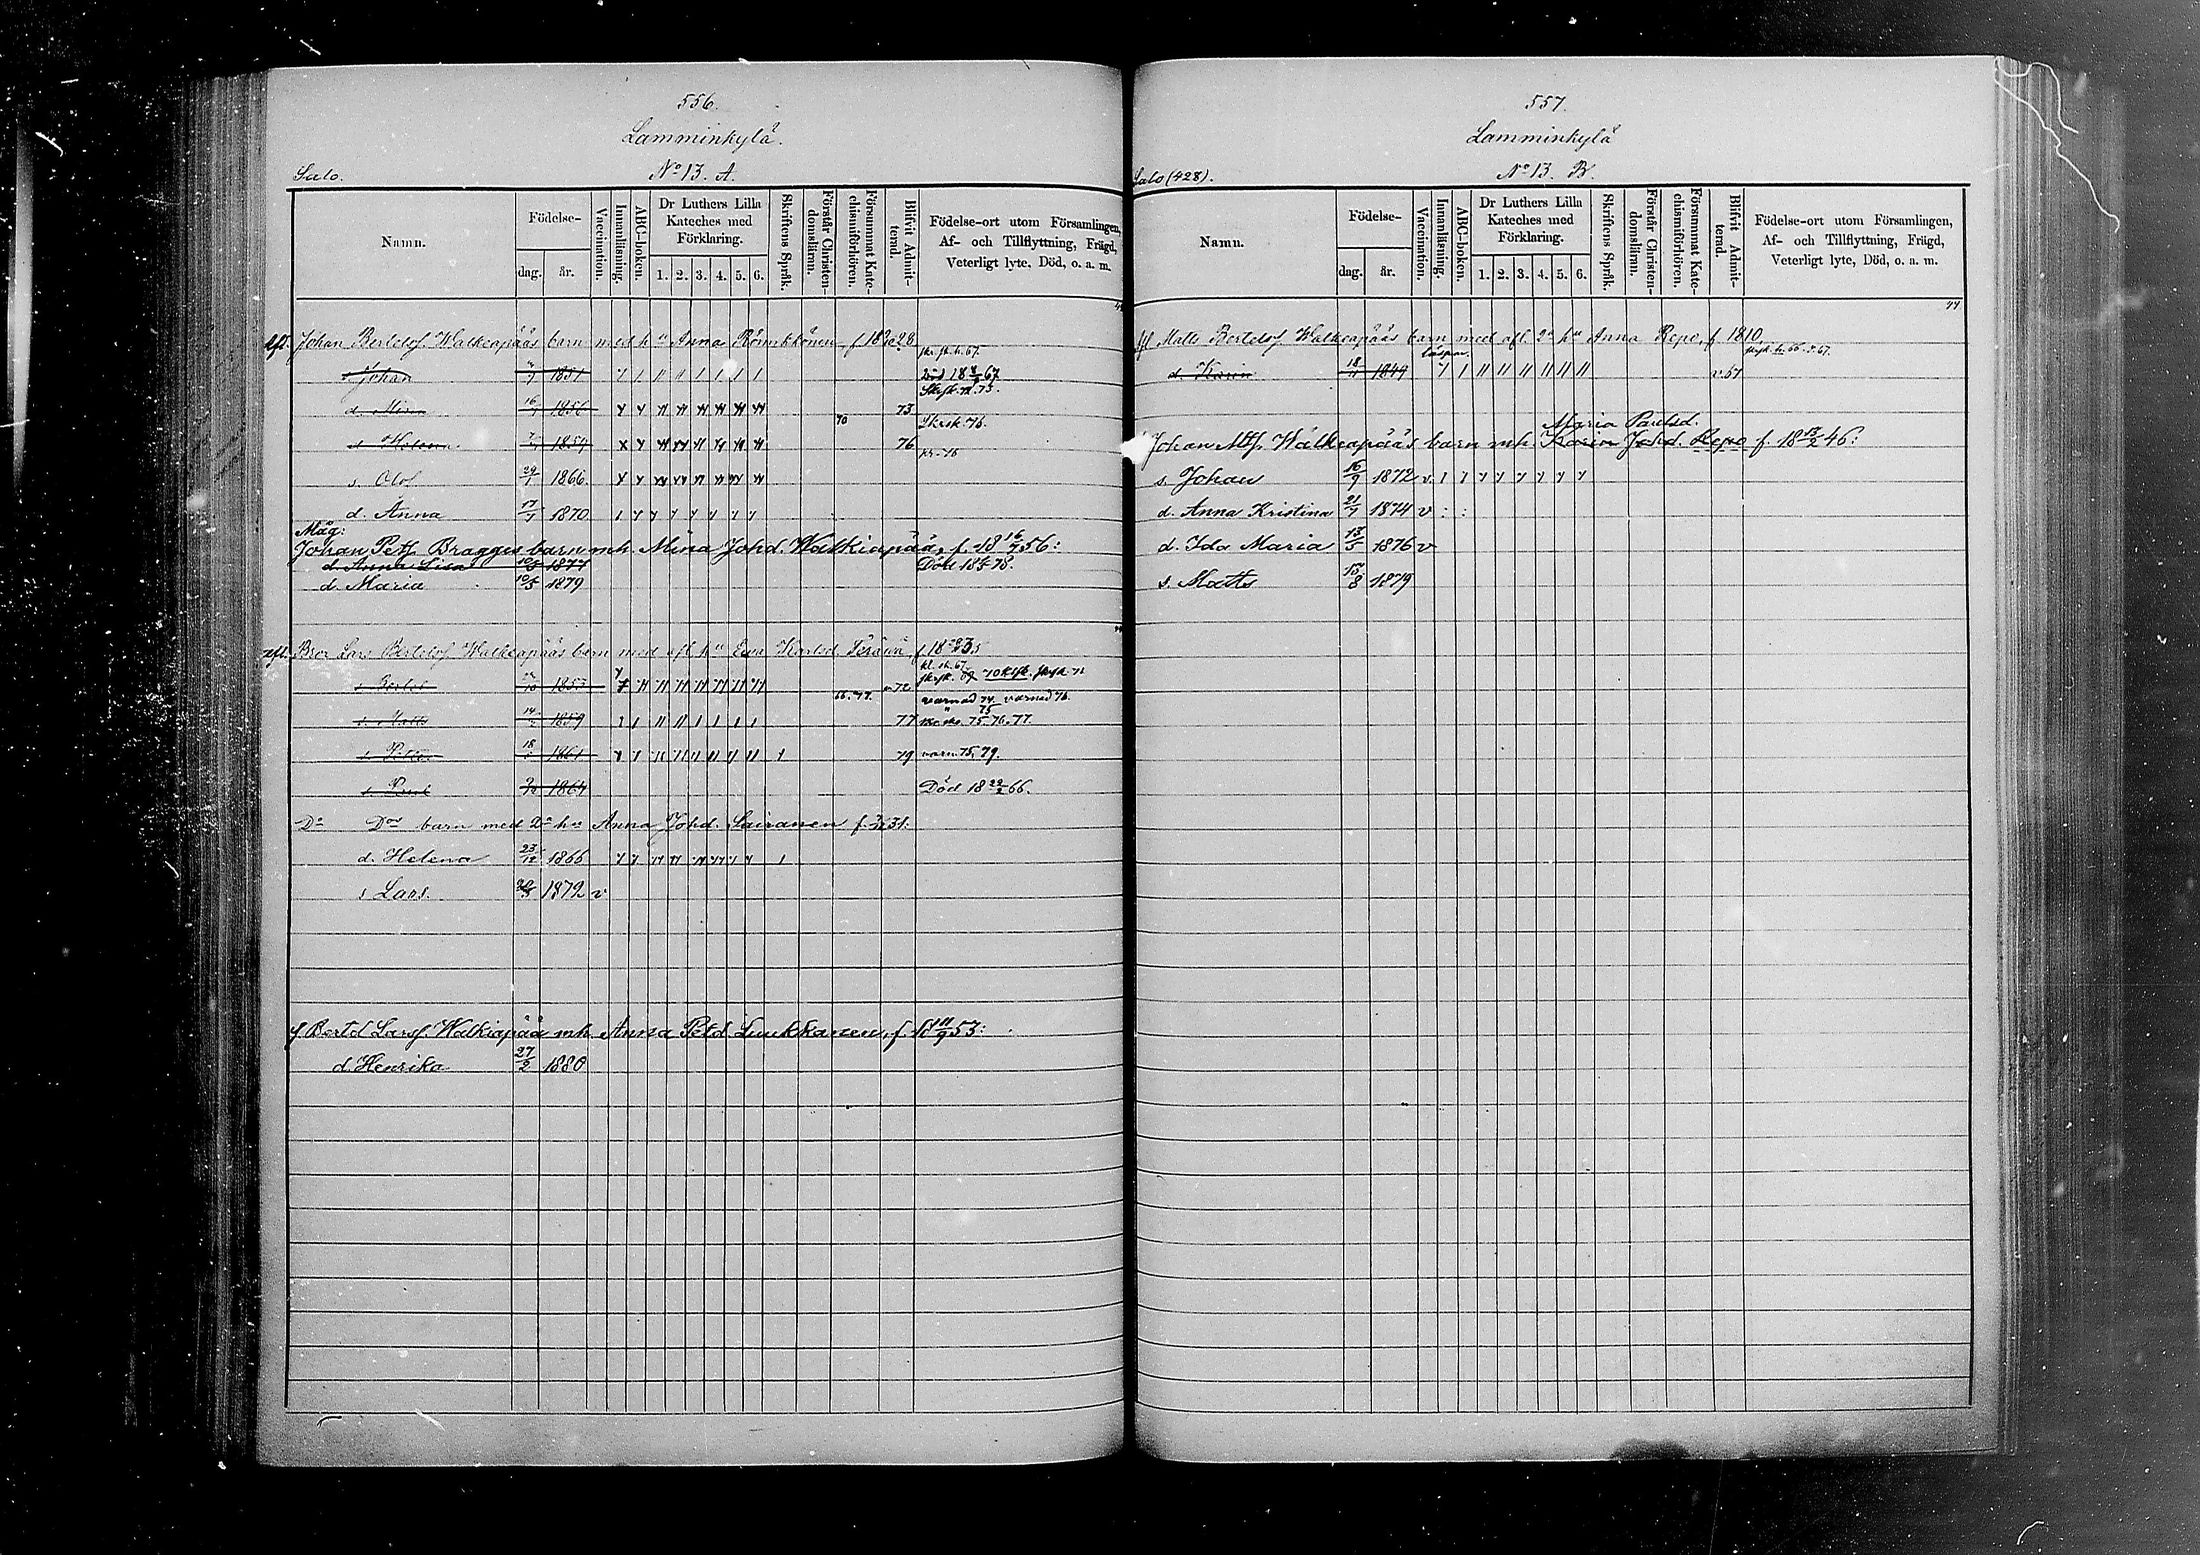 556.
Lamminkylä.
Salo.
No 13. A.
Namn.
Födelse-
dag.
år.
Vaccination.
Innanläsning.
ABC-boken.
Dr Luthers Lilla
Kateches med
Förklaring.
1. 2. 3. 4. 5. 6.
Skriftens Språk.
Förstår Christen-
domsläran.
Försummat Kate-
chismiförhören.
Blifvit Admit-
terad.
Födelse-ort utom Församlingen,
Af- och Tillflyttning, Frägd,
Veterligt lyte, Död, o. a. m.
Johan Bertelsf. Walkeapääs barn med hu Anna
s. Johan 1851
d. Mina 16 1856 73
d. Helena 1859 76
s. Olof 29/1 1866
d. Anna 17/1 1870
Måg:
Johan Petf. Bragges barn mh. Mina Johd. Walkiapää, f. 18 16/7 56:
d. Anna Lisa 1877 Död 78.
d. Maria 10/5 1879
Bror Lars Bertelsf. Walkeapääs barn med afl. hu Eva Karlsd.
s. Bertel 1853 72
s. Matts 14 1859 77 75. 76. 77.
s. Petter 18 1861 79 varn. 75, 79.
s. Paul 1864 Död 18 22/2 66.
Do Dos barn med 2a hu Anna Johd. Sairanen f. 31.
d. Helena 23/12 1866
s Lars. 1872 v
f. Bertel Larsf. Walkiapää mh. Anna Petd. Luukkanen, f. 18 11/9 53:
d. Henrika 27/2 1880
557.
Lamminkylä
Salo (428).
No 13. B.
Namn.
Födelse-
dag.
år.
Vaccination.
Innanläsning.
ABC-boken.
Dr Luthers Lilla
Kateches med
Förklaring.
1. 2. 3. 4. 5. 6.
Skriftens Språk.
Förstår Christen-
domsläran.
Försummat Kate-
chismiförhören.
Blifvit Admit-
terad.
Födelse-ort utom Församlingen,
Af- och Tillflyttning, Frägd,
Veterligt lyte, Död, o. a. m.
Matts Bertelsf. Walkeapääs barn med afl. 2a hu Anna Repo, f. 1810.
d. Karin 18/11 1849
Maria Paulsd.
Johan Mtsf. Walkeapääs barn mh. Karin Johd. Repo f. 18 13/2 46:
s. Johan 16/9 1872 v.
d. Anna Kristina 21/7 1874 v
d. Ida Maria 13/5 1876 v
s. Matts 15/8 1879